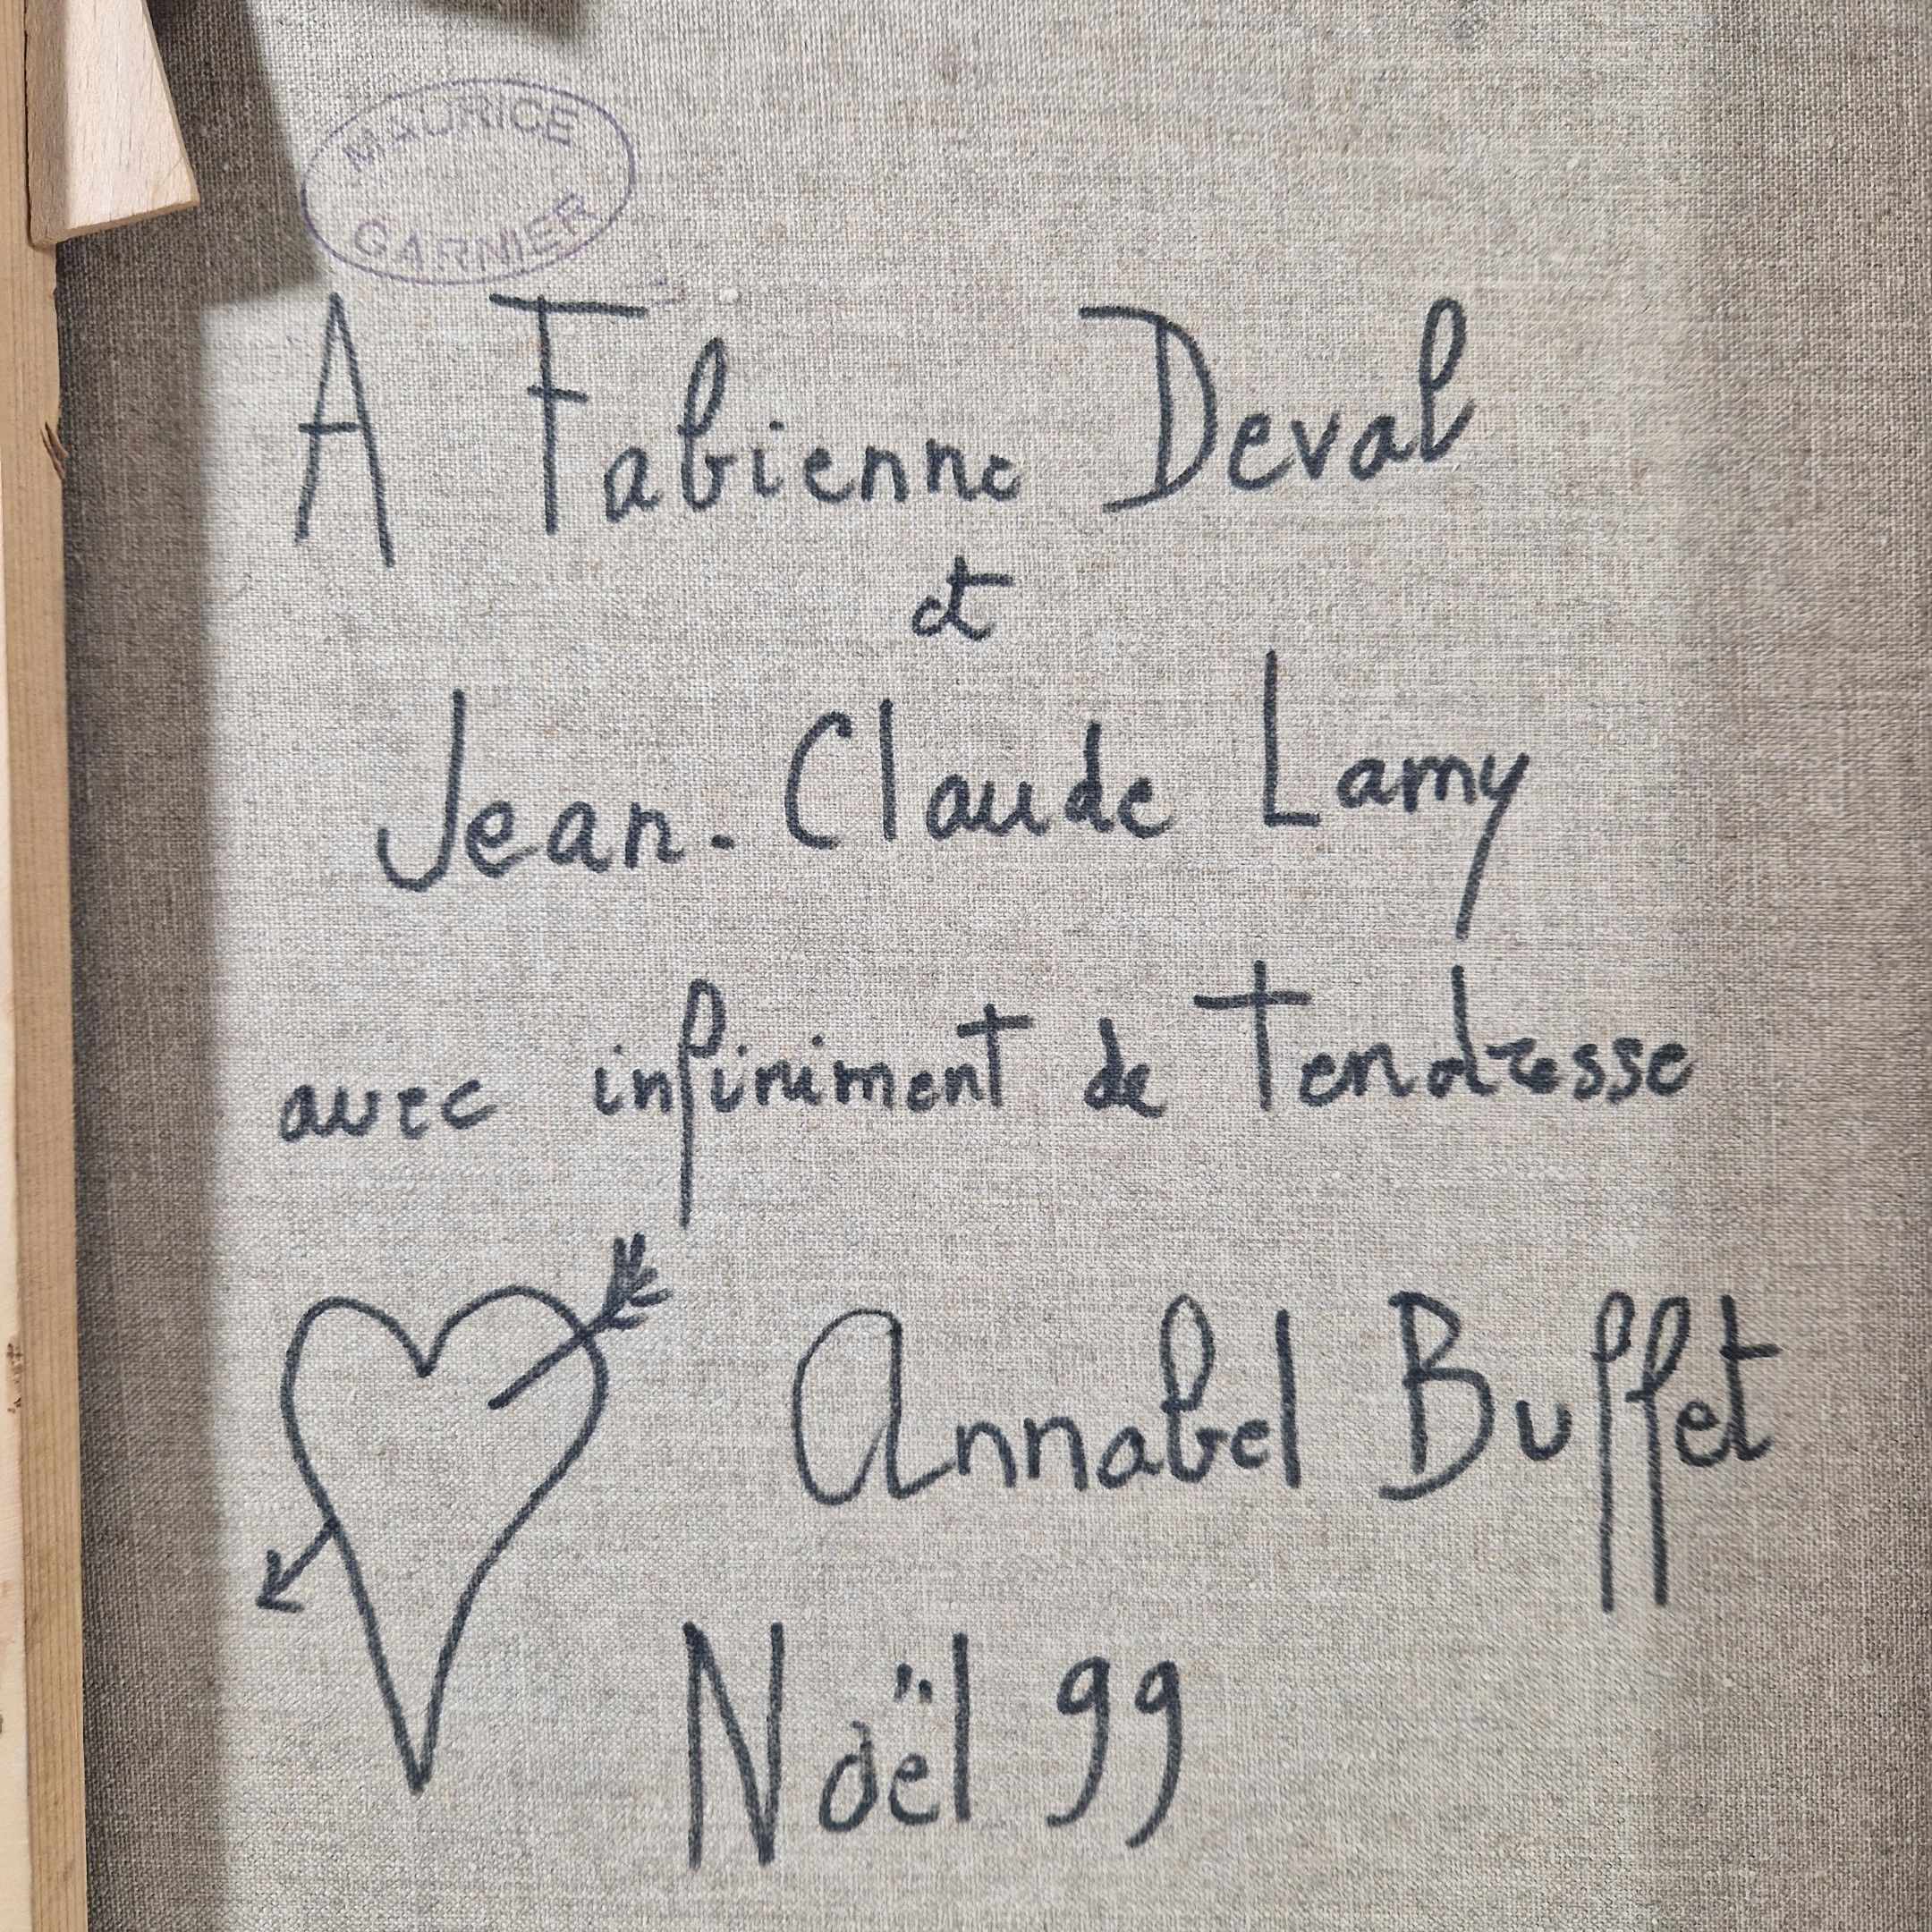 MAURICE
GARNIER
A Fabienne Deval
et
Jean-Claude Lamy
avec infiniment de Tendresse
Annabel Buffet
Noël 99